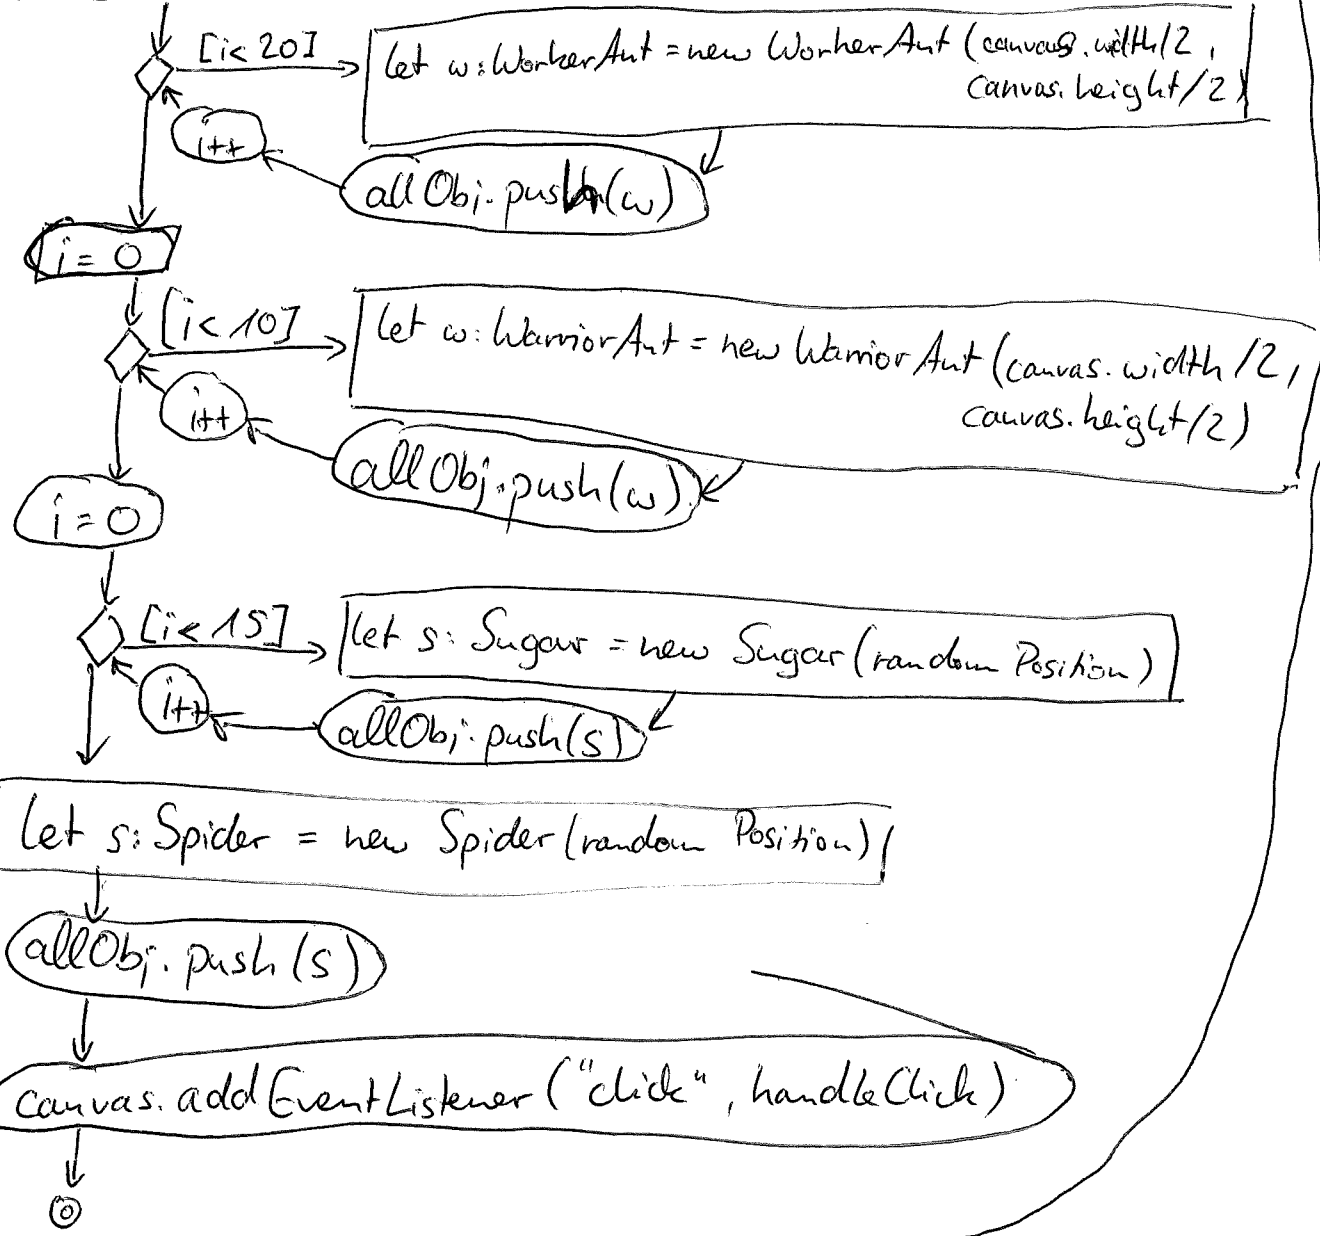 [i< 20]
let w:WorkerAnt = new WorkerAnt (canvas.width/2,
canvas.height/2)
i++
allObj.push(w)
i = 0
[i< 10]
let w:WarriorAnt = new WarriorAnt (canvas.width/2,
canvas.height/2)
i++
allObj.push(w)
i = 0
[i< 15]
let s: Sugar = new Sugar (random Position)
i++
allObj.push(s)
let s: Spider = new Spider (random Position)
allObj.push(s)
canvas.addEventListener ("click", handleClick)